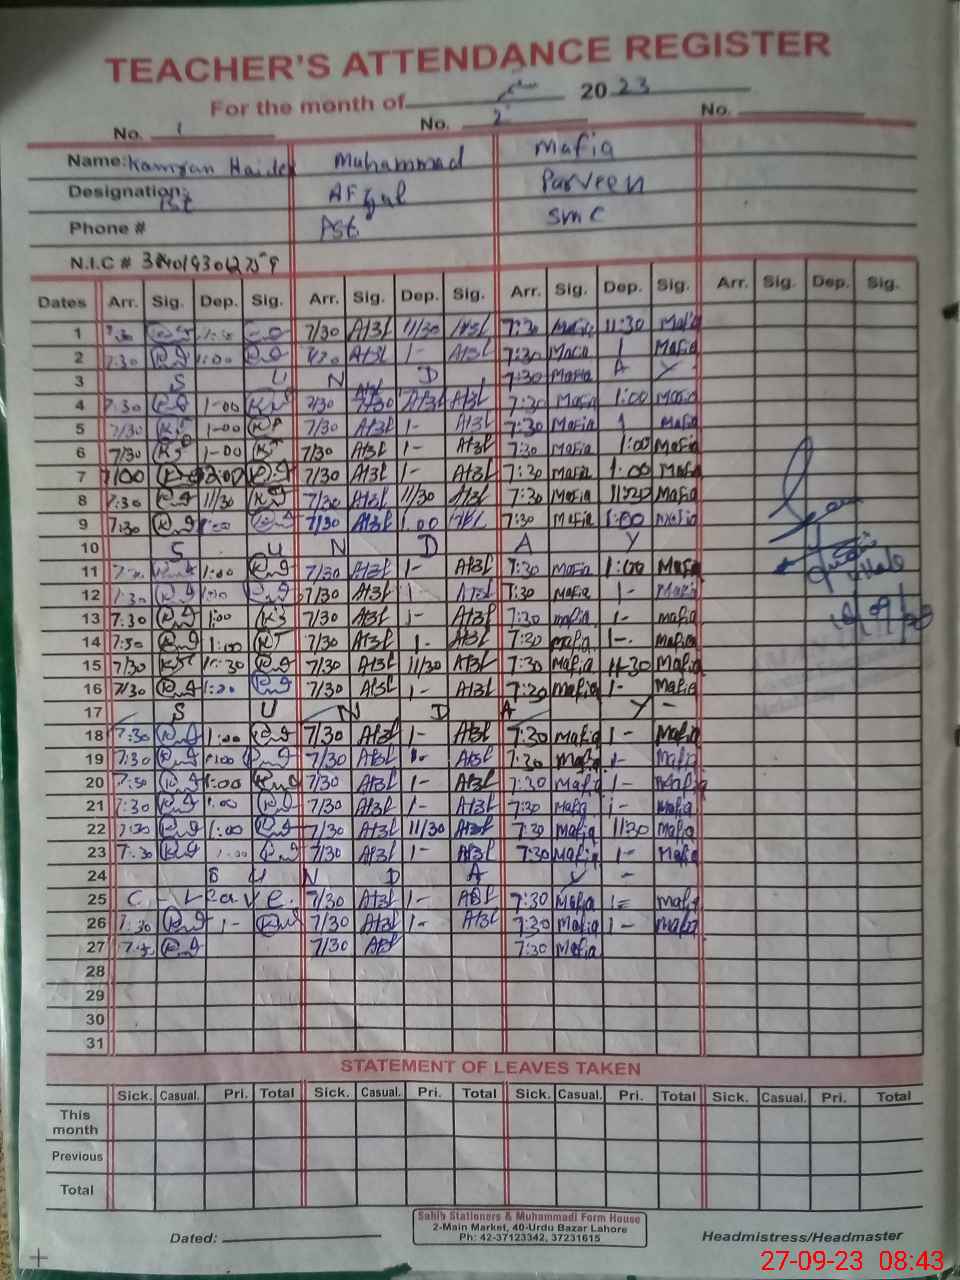 TEACHER'S ATTENDANCE REGISTER
For the month of ستمبر 2023
No. 1 No. 2 No.
Name: Kamran Haider Muhammad Mafia
Designation: Pst AFzal Parveen
Phone # Pst SMC
N.I.C #
Dates Arr. Sig. Dep. Sig. Arr. Sig. Dep. Sig. Arr. Sig. Dep. Sig. Arr. Sig. Dep. Sig.
1 7:30 7/30 Afzl 11/30 Afzl 7:30 Mafia 11:30 Mafia
2 7:30 1:00 7/30 Afzl 1- Afzl 7:30 Mafia 1 Mafia
3 S U N D 7:30 Mafia A Y
4 7:30 1-00 7/30 7/30 Afzl Afzl 7:30 Mafia 1:00 Mafia
5 7/30 1-00 7/30 Afzl 1- Afzl 7:30 Mafia 1 Mafia
6 7/30 1-00 7/30 Afzl 1- Afzl 7:30 Mafia 1:00 Mafia
7 7/00 2:00 7/30 Afzl 1- Afzl 7:30 Mafia 1:00 Mafia
8 7:30 11/30 7/30 Afzl 11/30 Afzl 7:30 Mafia 11:20 Mafia
9 7:30 1:00 7/30 Afzl 1.00 Afzl 7:30 Mafia 1:00 Mafia
10 S U N D A Y
11 1:00 7/30 Afzl 1- Afzl 7:30 Mafia 1:00 Mafia
12 7:30 1:00 7/30 Afzl 1- Afzl 7:30 Mafia 1- Mafia
13 7:30 1:00 7/30 Afzl 1- Afzl 7:30 mafia 1- mafia
14 7:30 1:00 7/30 Afzl 1- Afzl 7:20 mafia 1-. mafia
15 7/30 11:30 7/30 Afzl 11/30 Afzl 7:30 Mafia 11-30 Mafia
16 7/30 1:20 7/30 Afzl 1- Afzl 7:20 mafia 1- Mafia
17 S U N D A Y -
18 7:30 1:00 7/30 Afzl 1- Afzl 7:30 Mafia 1- Mafia
19 7:30 1:00 7/30 Afzl 1- Afzl 7:30 Mafia 1- Mafia
20 7:30 1:00 7/30 Afzl 1- Afzl 7:30 Mafia 1- Mafia
21 7:30 1:00 7/30 Afzl 1- Afzl 7:30 Mafia 1- Mafia
22 7:30 1:00 7/30 Afzl 11/30 Afzl 7:30 Mafia 11:30 Mafia
23 7:30 1:00 7/30 Afzl 1- Afzl 7:30 Mafia 1- Mafia
24 S U N D A Y -
25 C - Leave. 7/30 Afzl 1- Afzl 7:30 Mafia 1- mafia
26 7:30 1- 7/30 Afzl 1- Afzl 7:30 Mafia 1- Mafia
27 7:30 7/30 Afzl 7:30 Mafia
28
29
30
31
STATEMENT OF LEAVES TAKEN
Sick. Casual. Pri. Total Sick. Casual. Pri. Total Sick. Casual. Pri. Total Sick. Casual. Pri. Total
This
month
Previous
Total
Sahib Stationers & Muhammadi Form House
2-Main Market, 40-Urdu Bazar Lahore
Ph: 42-37123342, 37231615
Dated: Headmistress/Headmaster
27-09-23 08:43